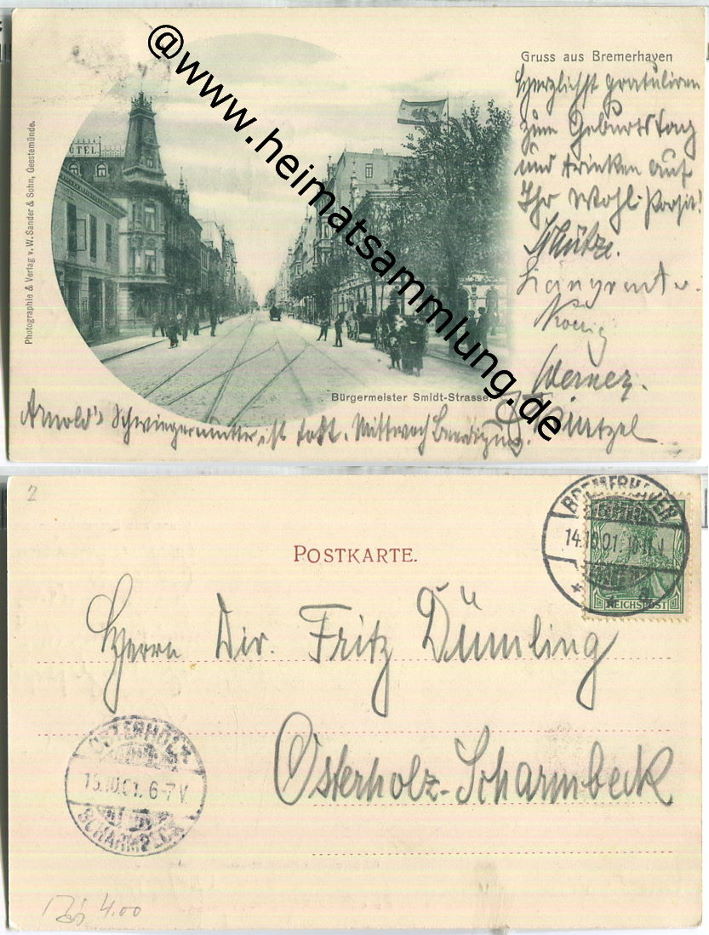 Gruss aus Bremerhaven
Herzlichst gratulieren
zum Geburtstag
und trinken auf
Ihr Wohl. Prosit!
Schütze.
Koenig
Werner.
Wintzel
HOTEL
Photographie & Verlag v. W. Sander & Sohn, Geestemünde.
Bürgermeister Smidt-Strasse.
Arnold's Schwiegermutter ist todt. Mittwoch Beerdigung.
@www.heimatsammlung.de
2
POSTKARTE.
BREMERHAVEN
14.10.01. 10-11 V
REICHSPOST
Herrn Dir. Fritz Dümling
Osterholz-Scharmbeck
OSTERHOLZ-
15.10.01. 6-7 V.
SCHARMBECK
4.00